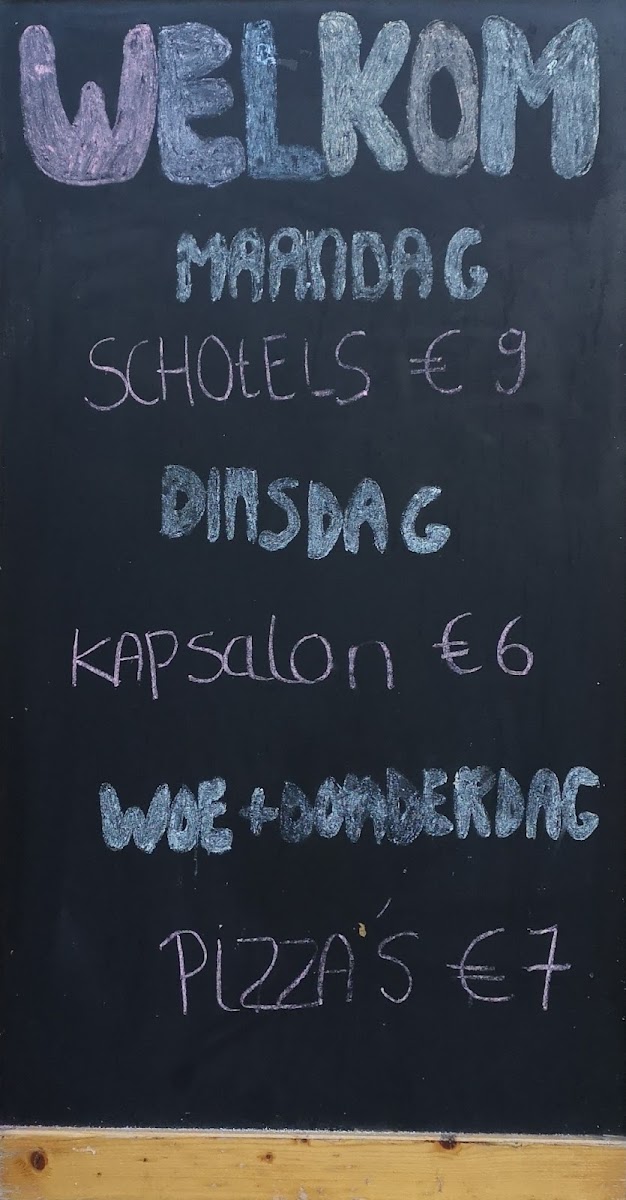 WELKOM
MAANDAG
SCHOtELS € 9
DINSDAG
KAPSalon €6
WOE + DONDERDAG
PiZZA'S €7